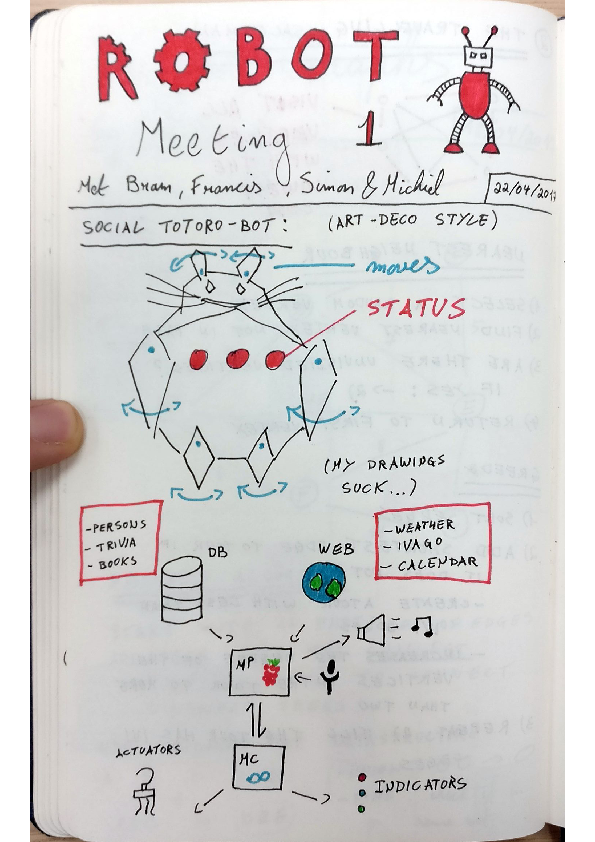 ROBOT
Meeting 1
Met Bram, Francis, Simon & Michiel
22/04/201
SOCIAL TOTORO-BOT: (ART-DECO STYLE)
moves
STATUS
(MY DRAWINGS
SUCK...)
-PERSONS
- TRIVIA
- BOOKS
DB
WEB
-WEATHER
- IVAGO
- CALENDAR
MP
MC
ACTUATORS
INDICATORS